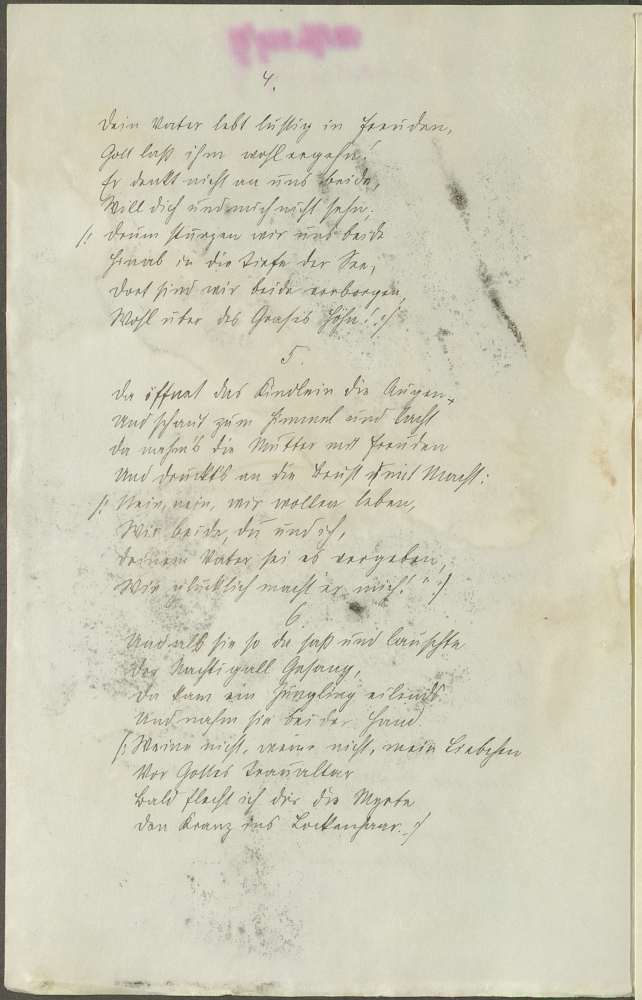 4.
Dein Vater lebt lustig in Freuden,
Gott laß ihm wohlergehn!
Er denkt nicht an uns beide,
Will dich und mich nicht sehn.
/: Drum stürzen wir uns beide
Hinab in die Tiefe der See,
Dort sind wir beide verborgen,
Wohl über des Grafes Höhn! :/
5.
Da öffnet das Kindlein die Augen,
Und schaut zum Himmel und lacht
Da nahm's die Mutter mit Freuden
Und drückt's an die Brust mit Macht:
/: Nein, nein, wir wollen leben,
Wir beide, du und ich,
Deinem Vater sei es vergeben,
Wie glücklich macht er mich!" :/
6.
Und als sie so da saß und lauschte
Der Nachtigall Gesang,
Da kam ein Jüngling eilends
Und nahm sie bei der Hand
/: Weine nicht, weine nicht, mein Liebchen
Vor Gottes Traualtar
Bald flecht ich dir die Myrte
Den Kranz ins Lockenhaar. :/